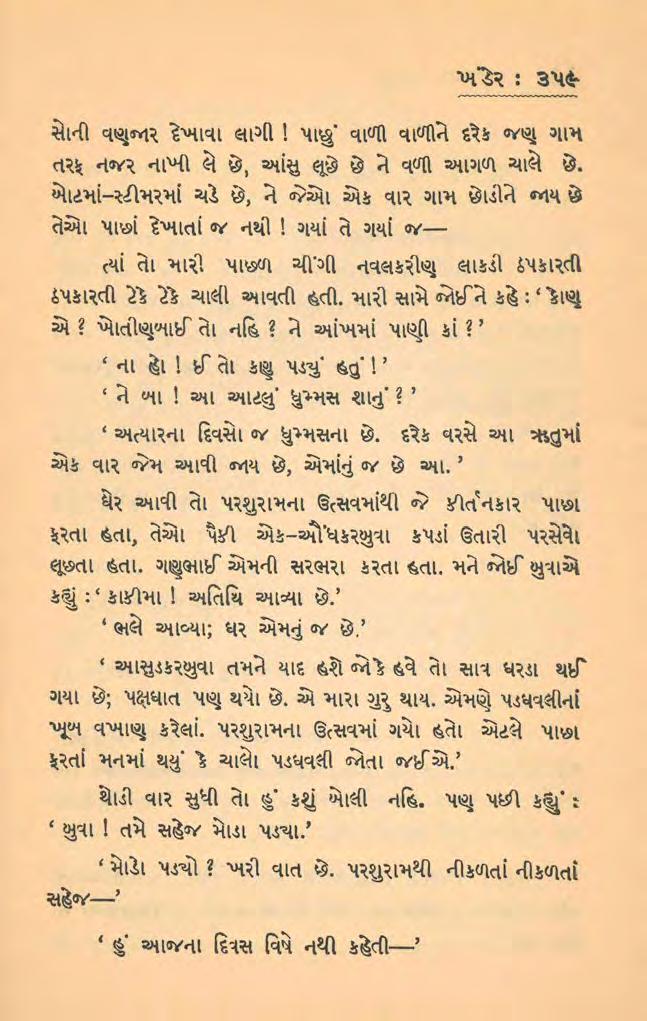 ખંડેર : ૩૫૯
સોની વણજાર દેખાવા લાગી ! પાછું વાળી વાળીને દરેક જણ ગામ
તરફ નજર નાખી લે છે, આંસુ લૂછે છે ને વળી આગળ ચાલે છે.
બોટમાં–સ્ટીમરમાં ચડે છે, ને જેઓ એક વાર ગામ છોડીને જાય છે
તેઓ પાછાં દેખાતાં જ નથી ! ગયાં તે ગયાં જ—
ત્યાં તો મારી પાછળ ચીંગી નવલકરીણ લાકડી ઠપકારતી
ઠપકારતી ટેકે ટેકે ચાલી આવતી હતી. મારી સામે જોઈને કહે : ‘ કોણ
એ ? ખોતીણબાઈ તો નહિ ? ને આંખમાં પાણી કાં ? ’
‘ ના હો ! ઈ તો કણુ પડ્યું હતું ! ’
‘ ને બા ! આ આટલું ધુમ્મસ શાનું ? ’
‘ અત્યારના દિવસો જ ધુમ્મસના છે. દરેક વરસે આ ઋતુમાં
એક વાર જેમ આવી જાય છે, એમાંનું જ છે આ. ’
ઘેર આવી તો પરશુરામના ઉત્સવમાંથી જે કીર્તનકાર પાછા
ફરતા હતા, તેઓ પૈકી એક–ઔંધકરબુવા કપડાં ઉતારી પરસેવો
લૂછતા હતા. ગણુભાઈ એમની સરભરા કરતા હતા. મને જોઈ બુવાએ
કહ્યું : ‘ કાકીમા ! અતિથિ આવ્યા છે.’
‘ ભલે આવ્યા; ઘર એમનું જ છે.’
‘ આસુડકરબુવા તમને યાદ હશે જોકે હવે તો સાવ ઘરડા થઈ
ગયા છે; પક્ષઘાત પણ થયો છે. એ મારા ગુરુ થાય. એમણે પડધવલીનાં
ખૂબ વખાણ કરેલાં. પરશુરામના ઉત્સવમાં ગયો હતો એટલે પાછા
ફરતાં મનમાં થયું કે ચાલો પડધવલી જોતા જઈએ.’
થોડી વાર સુધી તો હું કશું બોલી નહિ. પણ પછી કહ્યું :
‘ બુવા ! તમે સહેજ મોડા પડ્યા.’
‘ મોડો પડ્યો ? ખરી વાત છે. પરશુરામથી નીકળતાં નીકળતાં
સહેજ—’
‘ હું આજના દિવસ વિષે નથી કહેતી—’